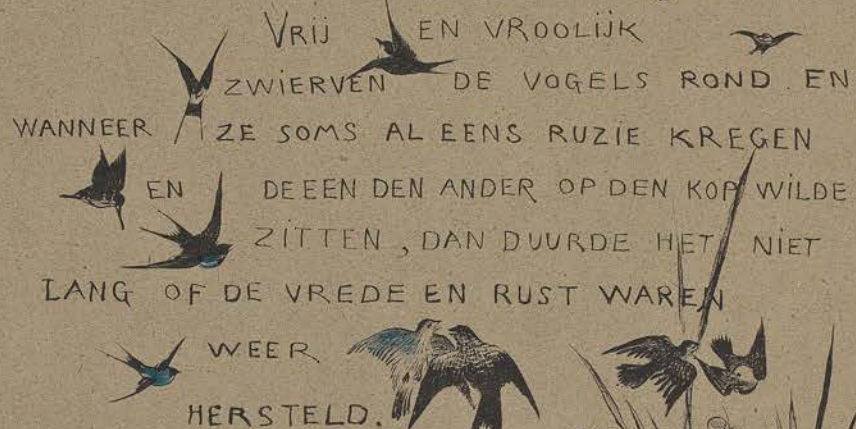 VRIJ EN VROOLIJK
ZWIERVEN DE VOGELS ROND. EN
WANNEER ZE SOMS AL EENS RUZIE KREGEN
EN DE EEN DEN ANDER OP DEN KOP WILDE
ZITTEN, DAN DUURDE HET NIET
LANG OF DE VREDE EN RUST WAREN
WEER
HERSTELD.